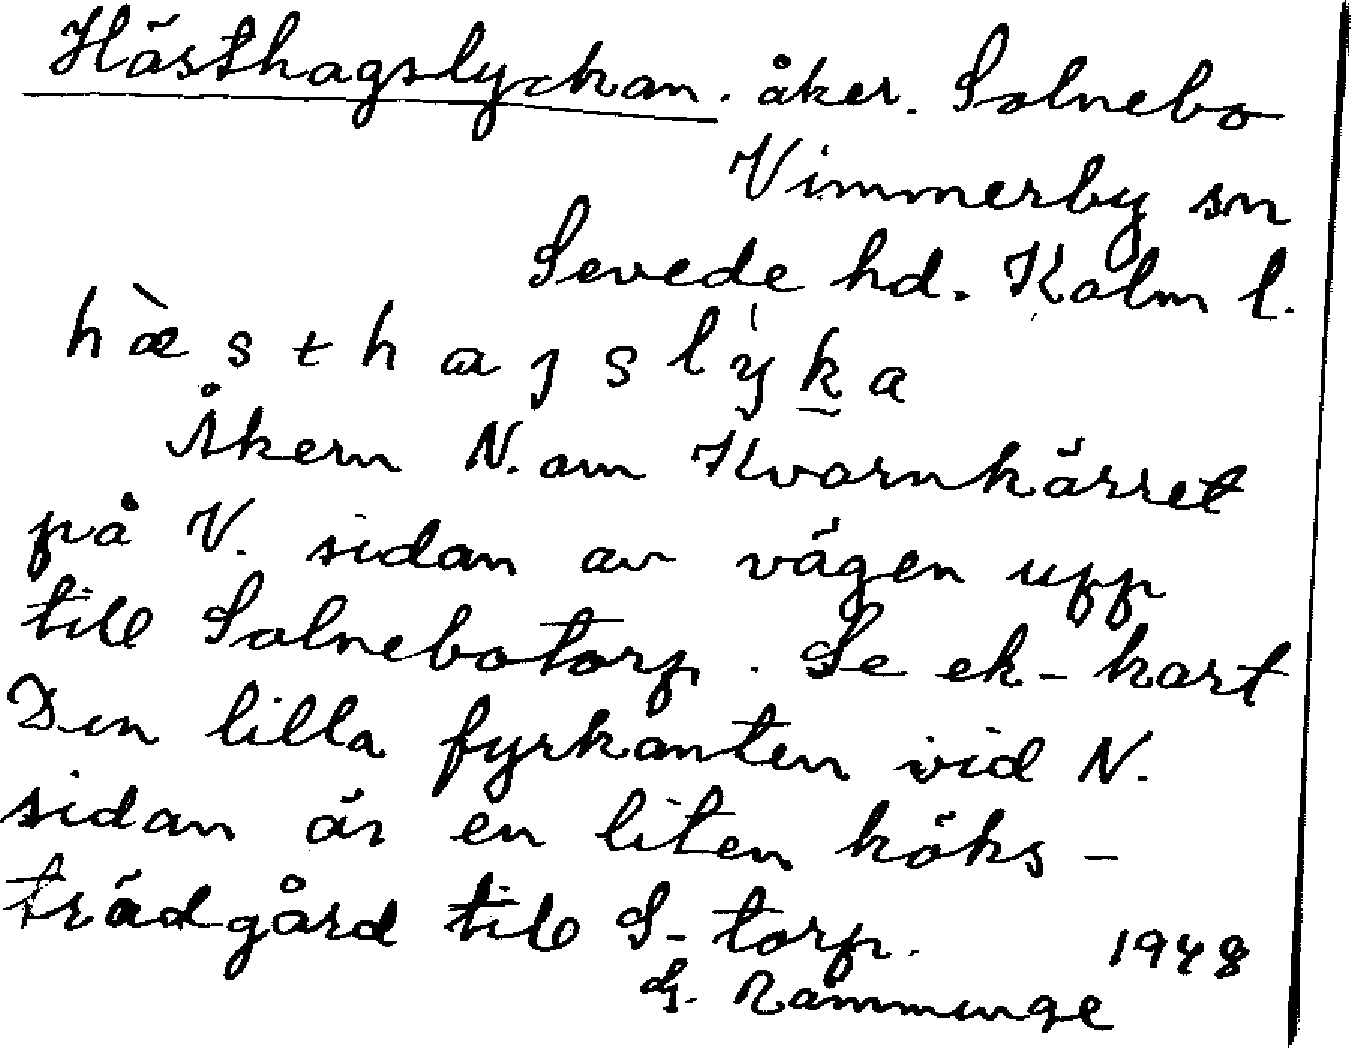 Hästhagslyckan. åker. Solnebo
Vimmerby sn
Sevede hd. Kalm l.
hæ̀sthaɡslyka
Åkern N. om Kvarnkärret
på V. sidan av vägen upp
till Solnebotorp. Se ek-kart
Den lilla fyrkanten vid N.
sidan är en liten köks-
trädgård till S-torp. 1948
G. Ramminge